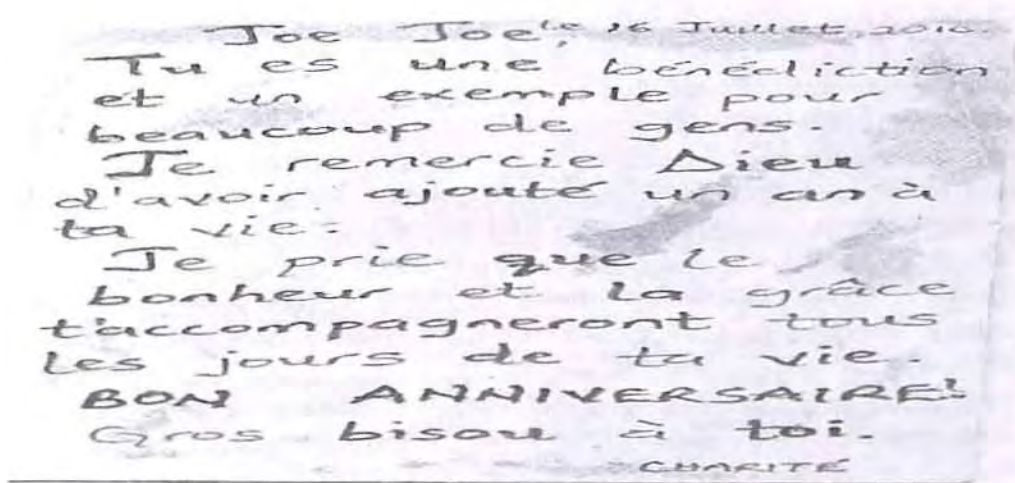 Joe Joe, le 16 Juillet, 2010
Tu es une bénédiction
et un exemple pour
beaucoup de gens.
Je remercie Dieu
d'avoir ajouté un an à
ta vie.
Je prie que le
bonheur et la grâce
t'accompagneront tous
les jours de ta vie.
BON ANNIVERSAIRE!
Gros bisou à toi.
CHARITÉ